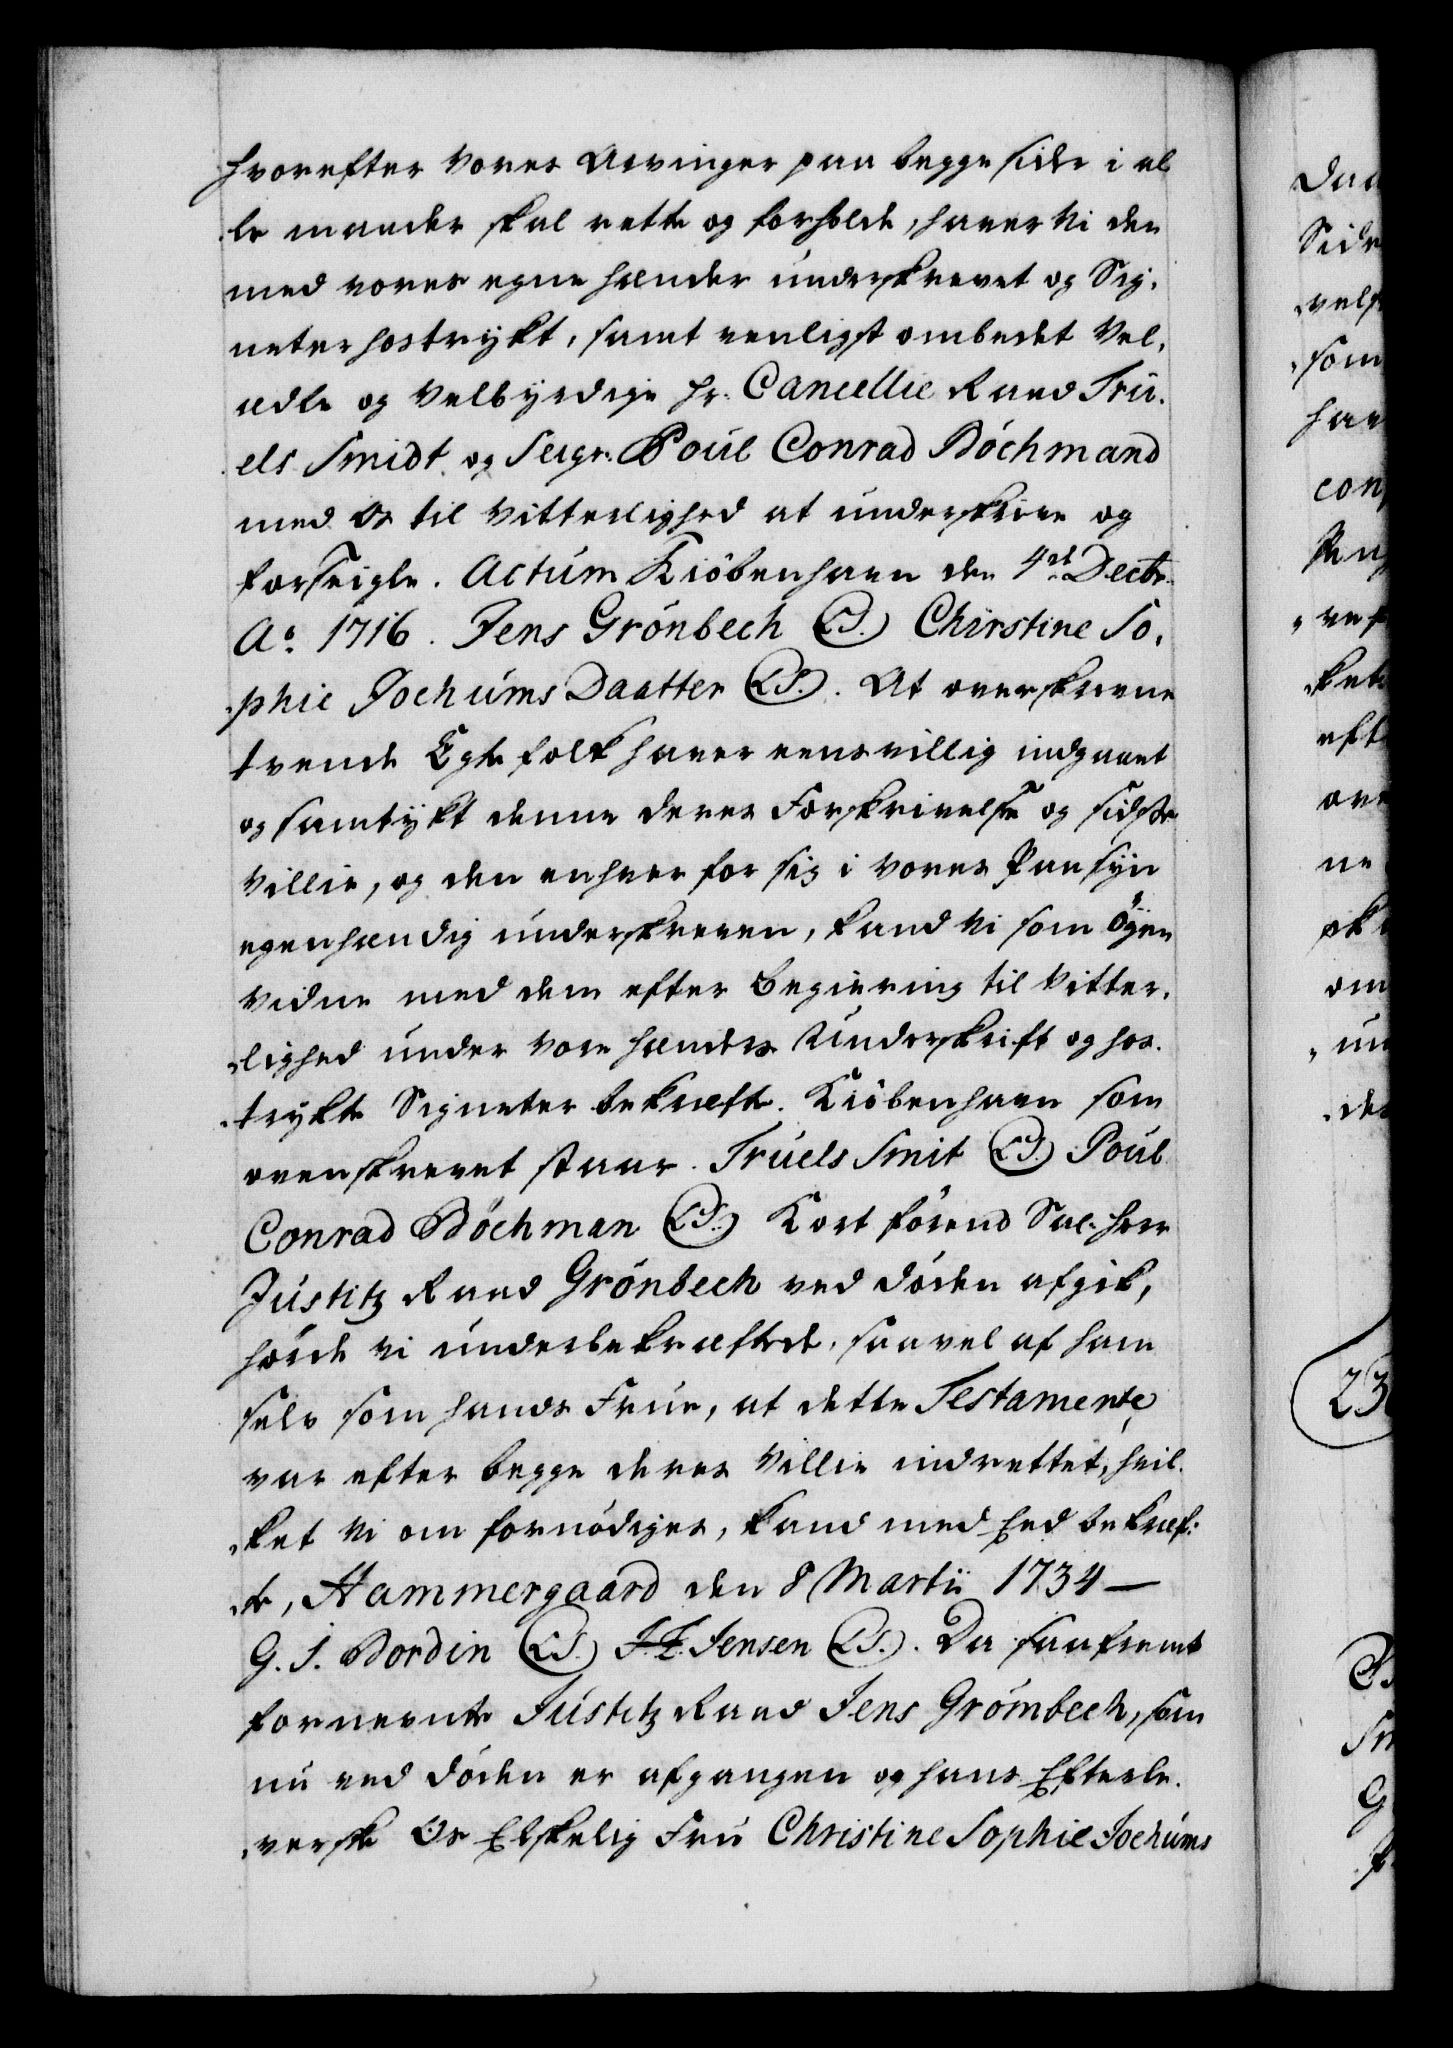 hvorefter vores Arvinger paa begge sider i al
le maader skal rette og forholde, haver Vi den
med vores egne hænder underskrevet og Sig,
neter hostrykt, samt venligst ombedet Vel,
ædle og Velbyrdige Hr. Cancellie Raad Trü,
els Smidt og Seigr. Poul Conrad Böchmand
med Os til Vitterlighed at underskrive og
forseigle. Actum Kiöbenhavn den 4de Decbr.
Ao. 1716. Jens Grönbech (LS.) Chirstine So,
phie Jochums Daatter (LS.). At overskrevne
tvende Egte folk haver eensvillig indgaaet
og samtykt denne deres Forskrivelse og sidste
Villie, og den enhver for sig i vores Paasyn
egenhændig underskreven, kand Vi som Öyen
Vidne med dem efter Begiering til Vitter,
lighed under vore hænders Underskrift og hos,
trykte Signeter bekræfte. Kiöbenhavn som
ovenskrevet staar. Truels Smit (LS.) Poul
Conrad Böchman (LS.) Kort förend Sal. Herr
Justitz Raad Grönbech ved döden afgik,
hörde vi underbekræftede, saavel af ham
selv som hands Frue, at dette Testamente
var efter begge deres Villie indrettet, hvil,
ket Vi om fornödiges, kand med Eed bekræf,
te, Hammergaard den 8 Martii 1734 —
G. J. Bordin (LS.) J. F. Jensen (LS.). Da saafremt
fornevnte Justitz Raad Jens Grömbech, som
nu ved döden er afgangen og hans Efterle,
verske Os Elskelig Fru Christine Sophie Jochums